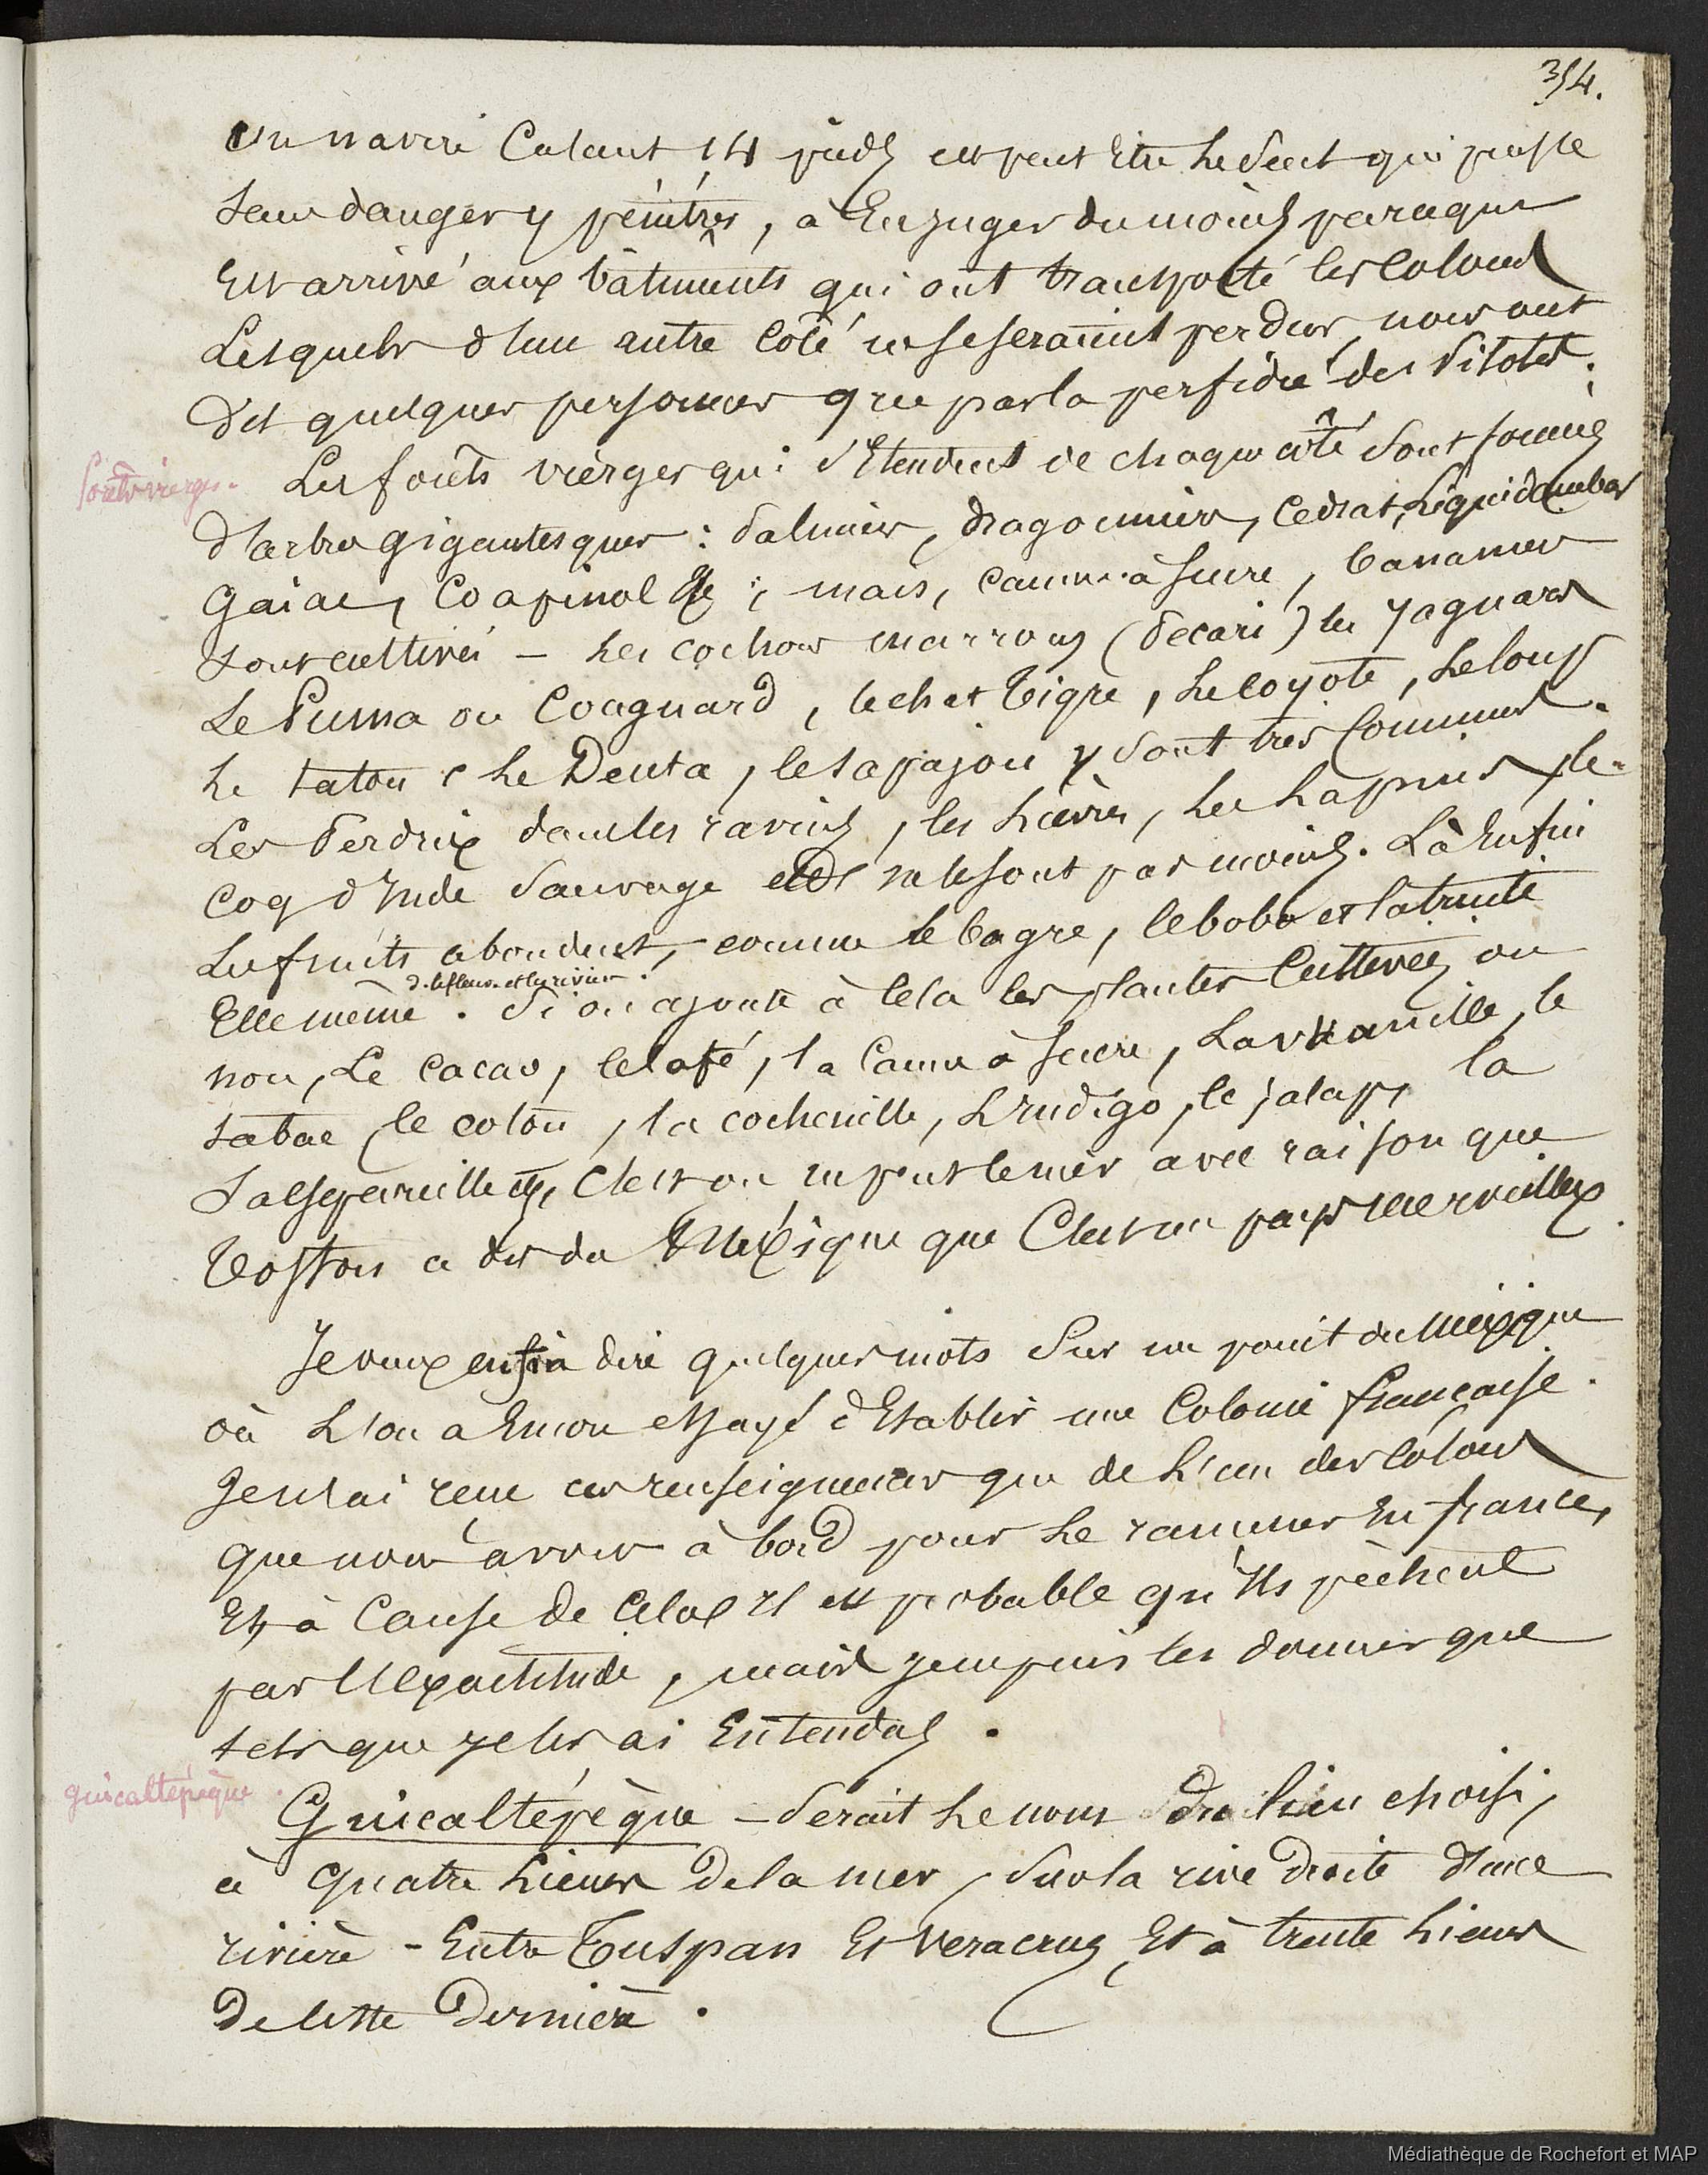 354.
Un navire Calant 14 pieds est peut être le seul qui puisse
sans danger y pénétrer, à En juger du moins par ce que
Est arrivé aux bâtiments qui ont transporté les Colons
Lesquels d'une autre côté ne se seraient perdus, nous ont
dit quelques personnes que par la perfidie des Pilotes.
forêts vierges.
Les forêts vierges qui s'Etendent de chaque côté sont formées
d'arbres gigantesques : Palmier, dragonnier, Cedrat, Liquidambar
Gaiac, Coapinol &c ; mais, canne à sucre, bananier
sont cultivés – Les cochons marrons (Pecari) les Jaguars
Le Puma ou Couguard, le chat Tigre, Le coyote, Le loup
Le tatou, Le Denta, le sapajou y sont très Communs.
Les Perdrix dans les ravins, les Lièvres, les Lapins, le
Coq d'Inde Sauvage ne le sont pas moins. Là Enfin
Les fruits abondent, comme le bagre, le bobo et la truite
d. le fleuve et la rivière.
Elle même. Si on ajoute à Cela les plantes Cultivées ou
non, Le Cacao, le Café, la Canne à Sucre, La vanille, le
tabac, le coton, la cochenille, L'indigo, le jalap, la
Salsepareille &c, C'est on ne peut le nier avec raison que
a dit du Mexique que C'est un pays merveilleux.
Je veux enfin dire quelques mots Sur un point du Mexique
où L'on a Encore essayé d'Etablir une Colonie française.
Je n'ai reçu ces renseignements que de L'un des Colons
que nous avons à bord pour Le ramener En france,
Et, à Cause de Cela Il est probable qu'Ils pèchent
par l'Inexactitude, mais je ne puis les donner que
tels que je les ai Entendus.
Guicaltépèque
Guicaltépèque – Serait Le nom du lieu choisi,
à quatre Lieues de la mer, Sur la rive Droite d'une
rivière - Entre Tuspan Et Veracruz, Et à trente Lieues
De Cette Dernière.
Médiathèque de Rochefort et MAP